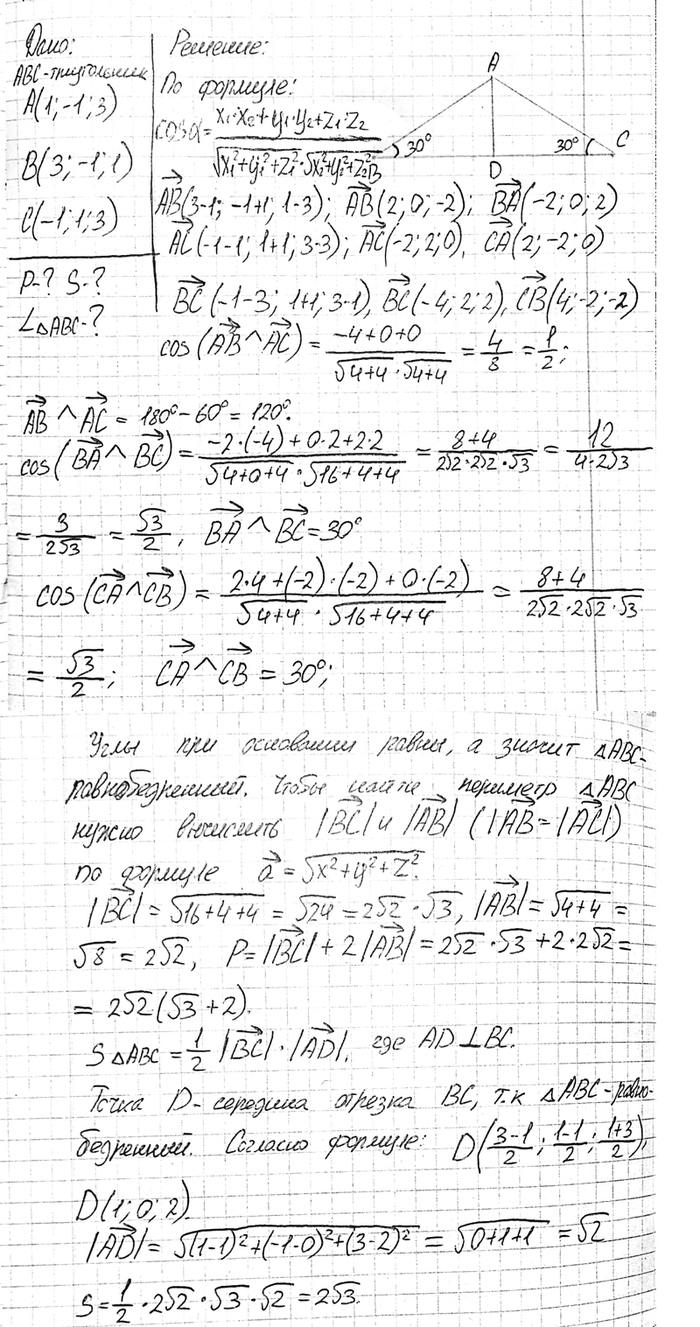 Дано:
ABC-треугольник
A(1;-1;3)
B(3;-1;1)
C(-1;1;3)
P-? S-?
∠△ABC-?
Решение:
По формуле:
cosα = (x₁·x₂+y₁·y₂+z₁·z₂)/(√(x₁²+y₁²+z₁²)·√(x₂²+y₂²+z₂²))
A
B 30° D 30° C
AB(3-1; -1+1; 1-3); AB(2; 0; -2); BA(-2; 0; 2)
AC(-1-1; 1+1; 3-3); AC(-2; 2; 0), CA(2; -2; 0)
BC(-1-3; 1+1; 3-1), BC(-4; 2; 2), CB(4; -2; -2)
cos(AB^AC) = (-4+0+0)/(√(4+4)·√(4+4)) = 4/8 = 1/2;
AB ^ AC = 180°-60° = 120°.
cos(BA^BC) = (-2·(-4)+0·2+2·2)/(√(4+0+4)·√(16+4+4)) = (8+4)/(2√2·2√2·√3) = 12/(4·2√3)
= 3/(2√3) = √3/2, BA^BC=30°
cos(CA^CB) = (2·4+(-2)·(-2)+0·(-2))/(√(4+4)·√(16+4+4)) = (8+4)/(2√2·2√2·√3)
= √3/2; CA^CB = 30°;
Углы при основании равны, а значит △ABC-
равнобедренный. Чтобы найти периметр △ABC
нужно вычислить |BC| и |AB| (|AB=|AC|)
по формуле a = √(x²+y²+z²).
|BC| = √(16+4+4) = √24 = 2√2·√3, |AB| = √(4+4) =
√8 = 2√2, P=|BC|+2|AB| = 2√2·√3+2·2√2 =
= 2√2(√3+2).
S△ABC = 1/2 |BC|·|AD|, где AD⊥BC.
Точка D- середина отрезка BC, т.к △ABC-равно-
бедренный. Согласно формуле: D((3-1)/2; (1-1)/2; (1+3)/2),
D(1; 0; 2).
|AD| = √((1-1)²+(-1-0)²+(3-2)²) = √(0+1+1) = √2
S = 1/2·2√2·√3·√2 = 2√3.